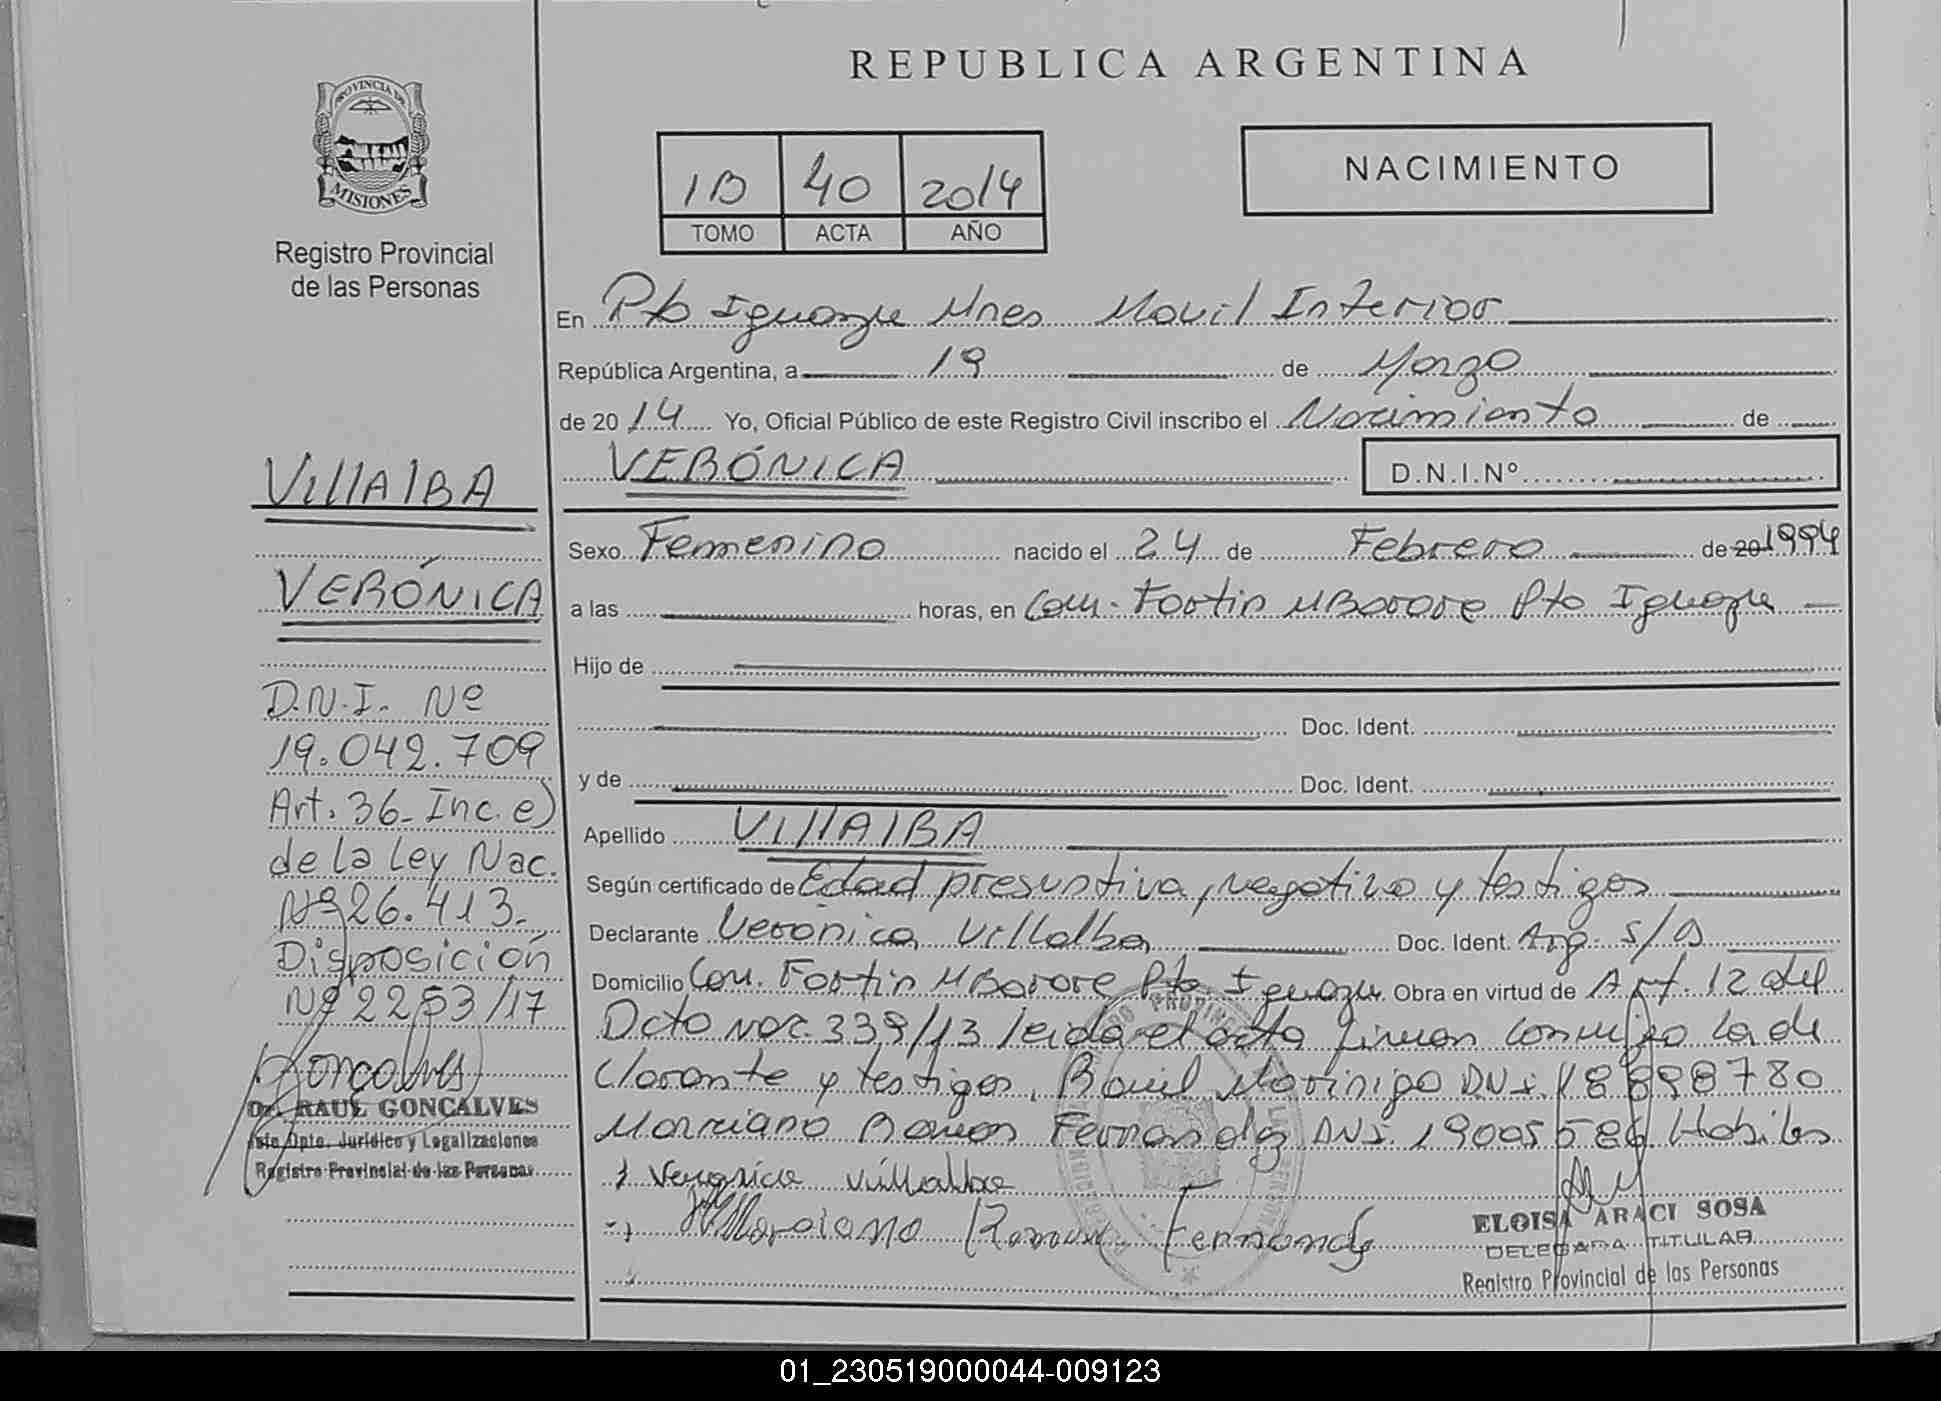 PROVINCIA DE
MISIONES
Registro Provincial
de las Personas
VillAlBA
VERÓNICA
D.N.I. Nº
19.042.709
Art. 36- Inc. e)
de la Ley Nac.
Nº 26.413-
Disposición
Nº 2253/17
Dr. RAUL GONCALVES
Dpto. Jurídico y Legalizaciones
Registro Provincial de las Personas
REPUBLICA ARGENTINA
1D 40 2014
TOMO ACTA AÑO
NACIMIENTO
En Pto Iguazu Mnes Movil Interior
República Argentina, a 19 de Marzo
de 2014 Yo, Oficial Público de este Registro Civil inscribo el Nacimiento de
VERÓNICA D.N.I.Nº
Sexo Femenino nacido el 24 de Febrero de 20 1994
a las horas, en Com. Fortin MBorore Pto Iguazu
Hijo de
Doc. Ident.
y de Doc. Ident.
Apellido VillAlBA
Según certificado de Edad presuntiva, negativo y testigos
Declarante Verónica Villalba Doc. Ident. Arg. s/d
Domicilio Com. Fortin MBorore Pto Iguazu. Obra en virtud de Art. 12 del
Dcto Nac. 339/13 leida el acta firman conmigo la de
clarante y testigos, Marinigo DNI. 18898780
Marciano Ramon Fernandez DNI. 19005586 Habiles
Veronica Villalba
Marciano Ramon Fernandez
ELOISA ARACI SOSA
DELEGADA TITULAR
Registro Provincial de las Personas
01_230519000044-009123